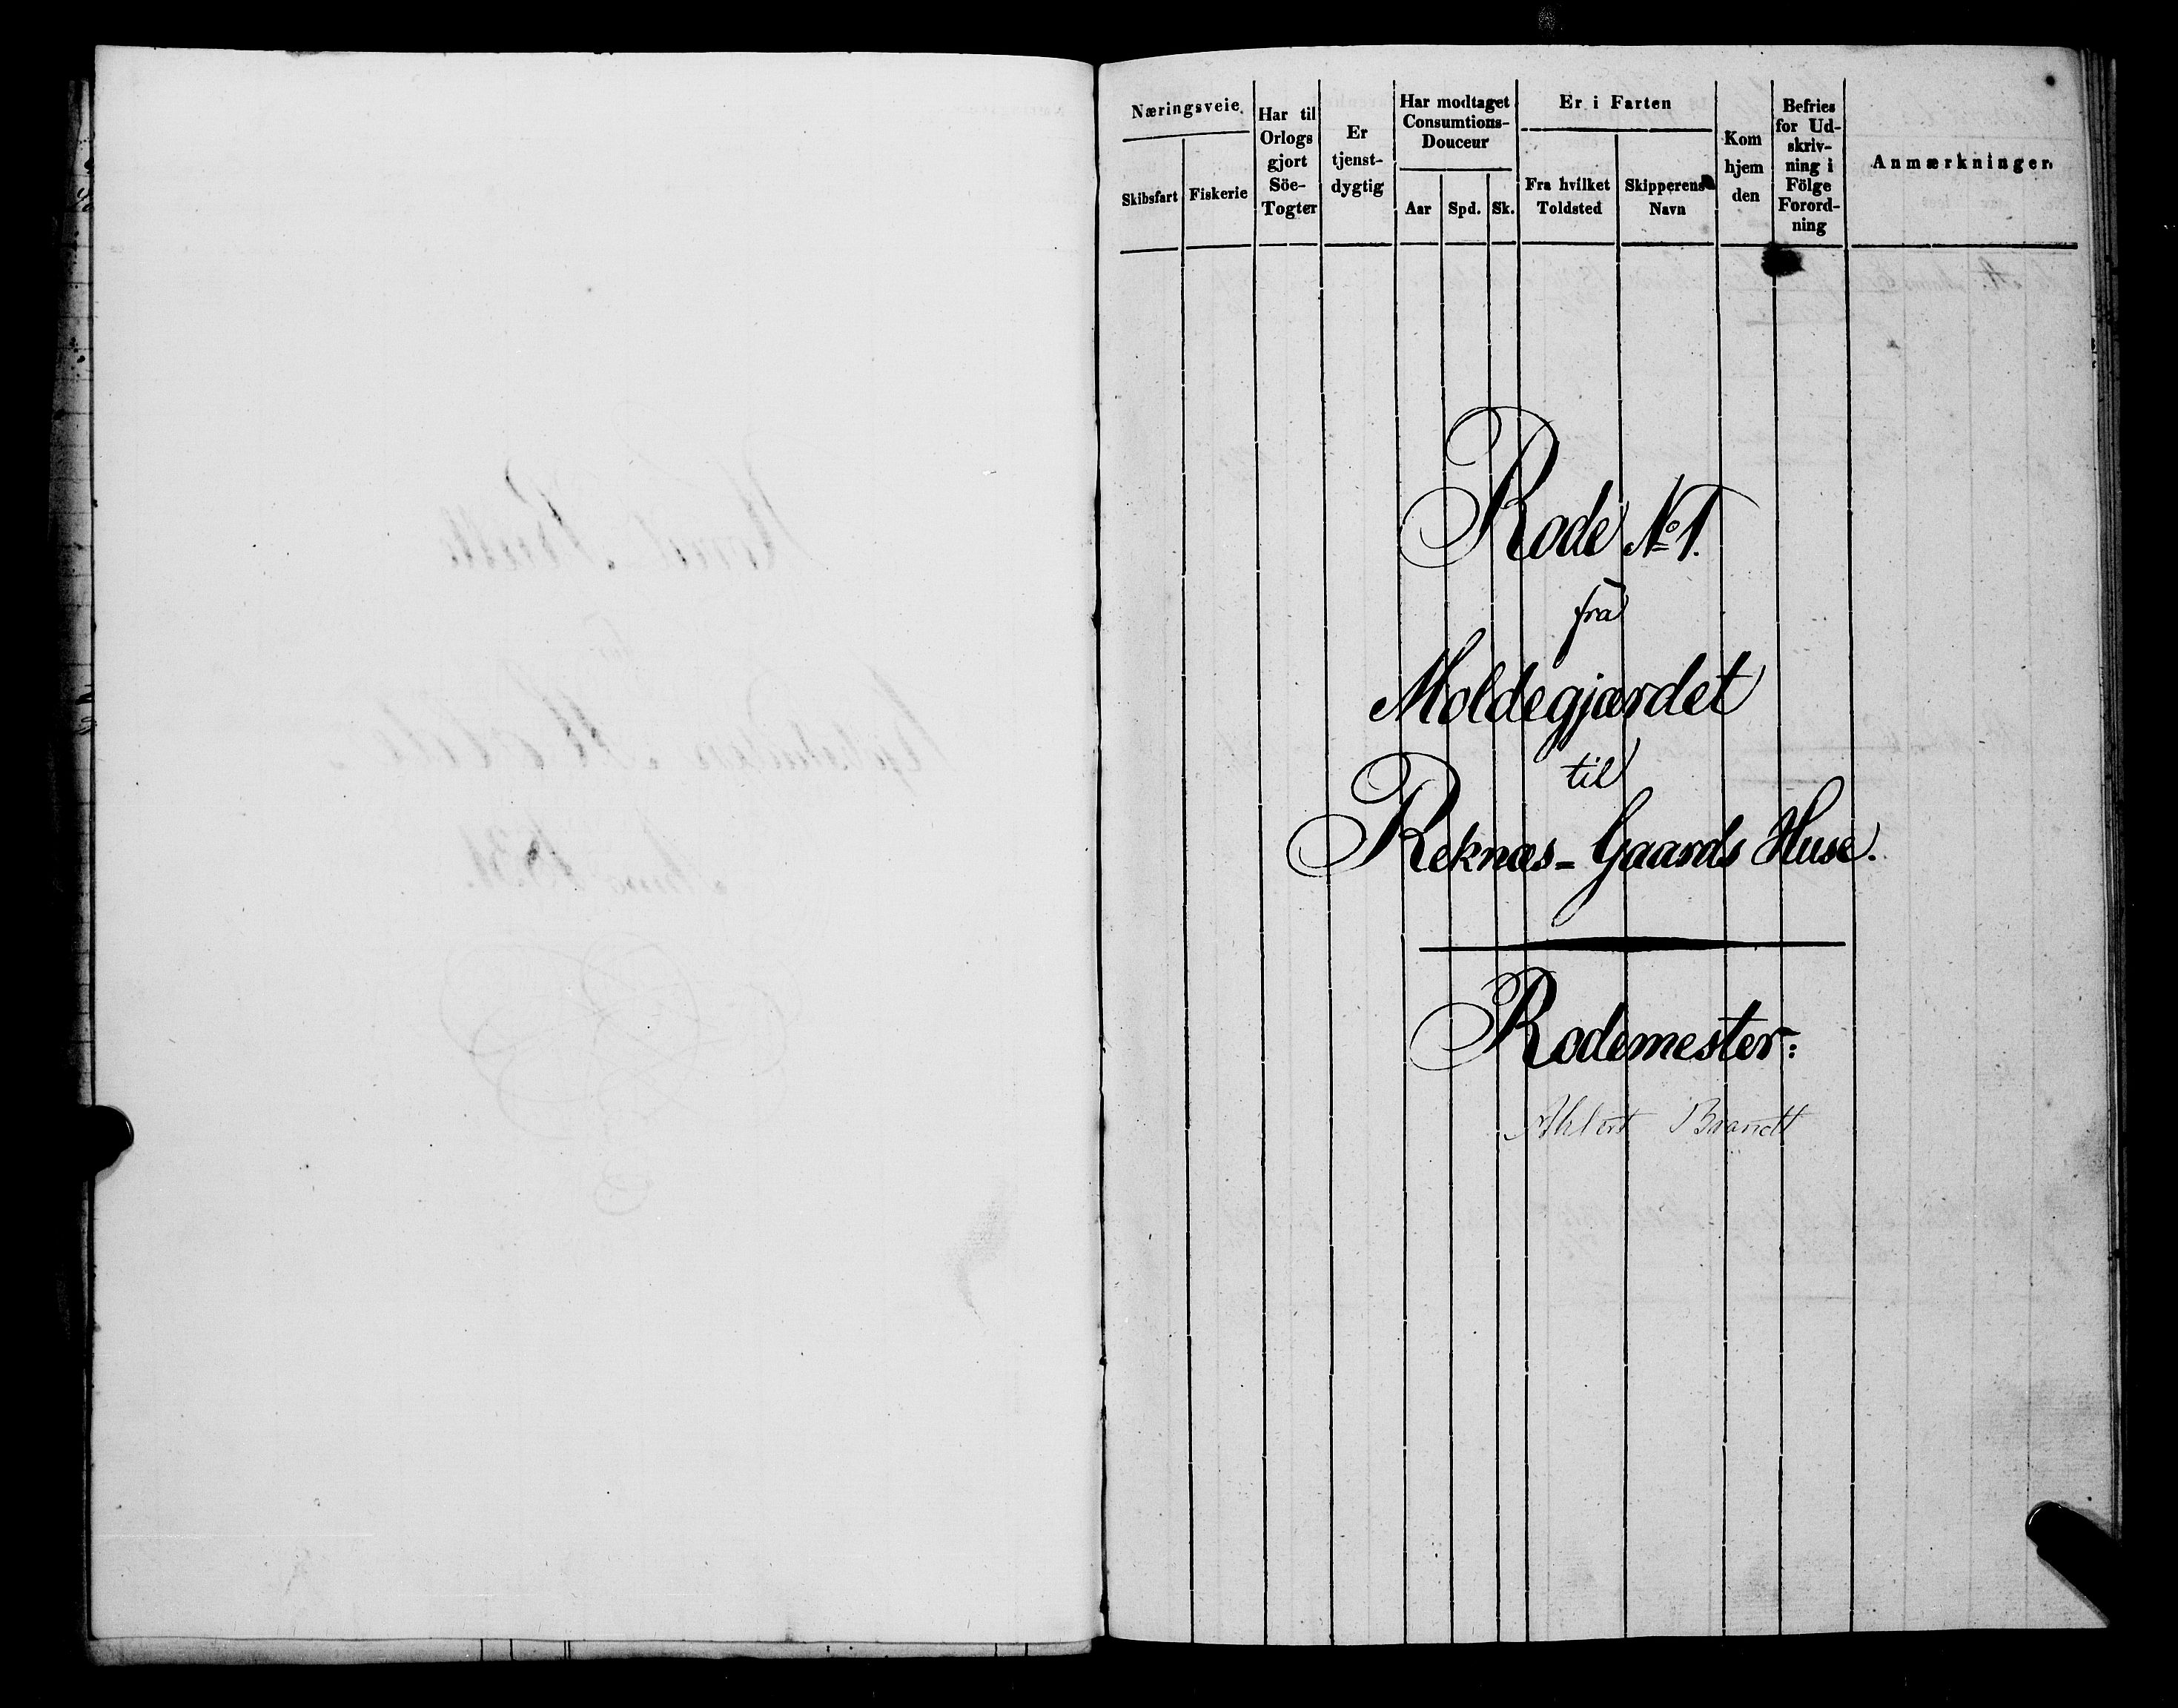 Næringsveie.
Skibsfart
Fiskerie
Har til
Orlogs
gjort
Söe-
Togter
Er
tjenst-
dygtig
Har modtaget
Consumtions-
Douceur
Aar
Spd.
Sk.
Er i Farten
Fra hvilket
Toldsted
Skipperens
Navn
Kom
hjem
den
Befries
for Ud-
skriv-
ning i
Fölge
Forord-
ning
Anmærkninger.
Rode No 1.
fra
Moldegjærdet
til
Reknæs-Gaards Huse.
Rodemester:
Ahlert Brandt